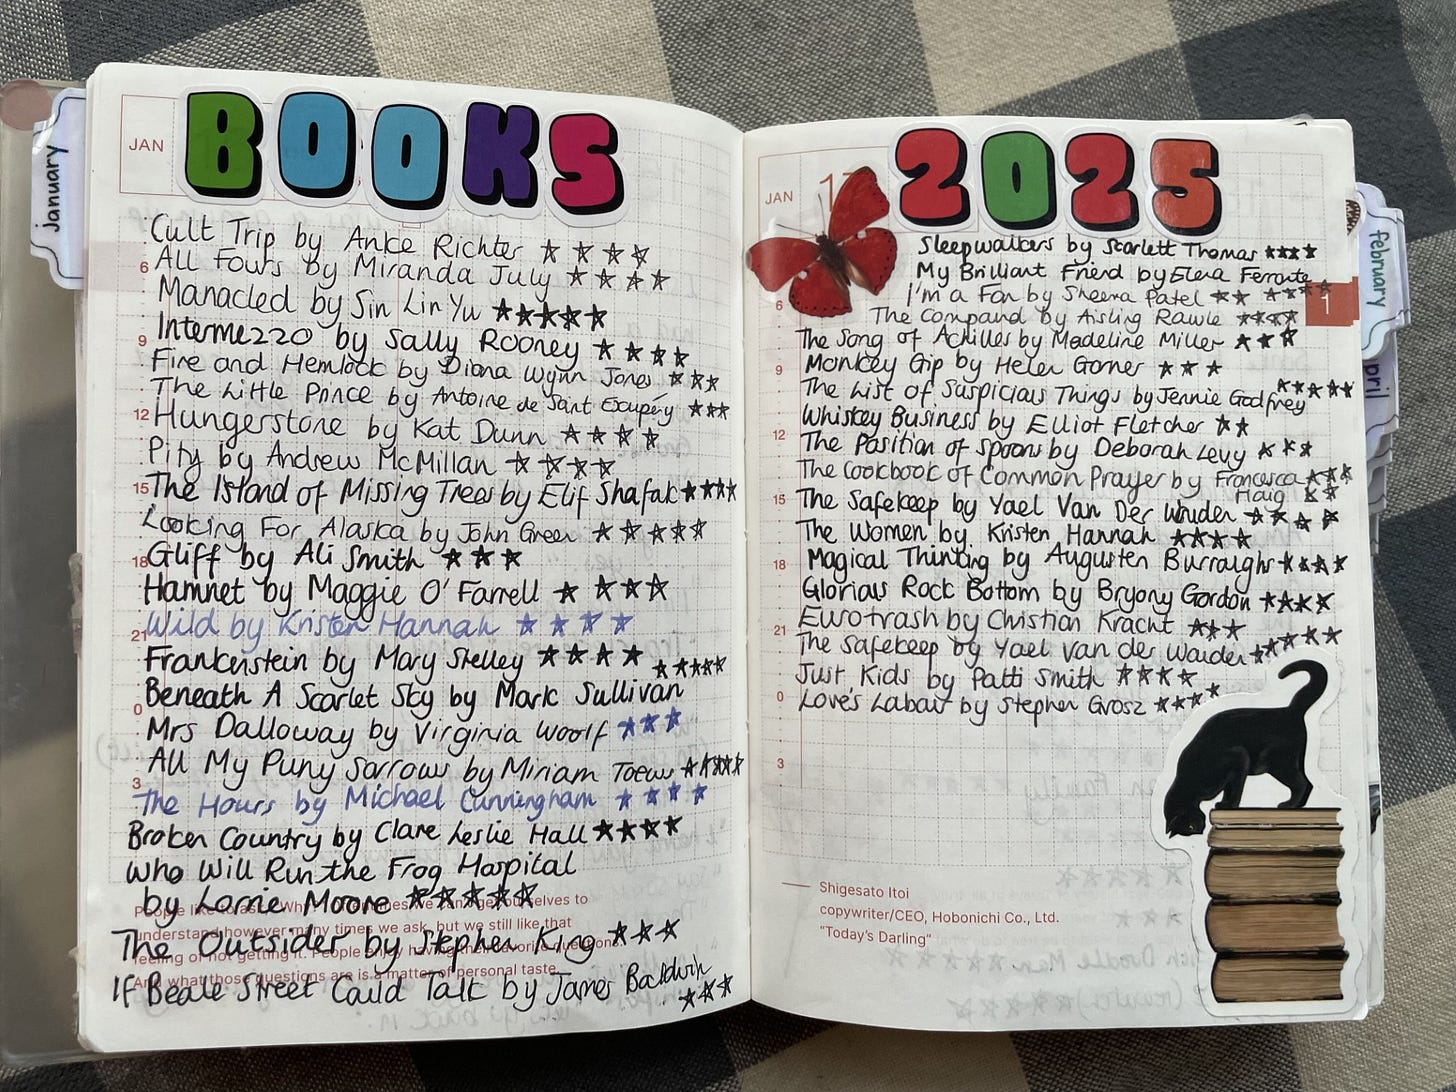 january
JAN
BOOKS
Cult Trip by Anke Richter ★★★★
All Fours by Miranda July ★★★★
6
Manacled by Sin Lin Yu ★★★★★
Intermezzo by Sally Rooney ★★★★
9
Fire and Hemlock by Diana Wynn Jones ★★★
The Little Prince by Antoine de Saint Exupéry ★★★
12
Hungerstone by Kat Dunn ★★★★
Pity by Andrew McMillan ★★★★
15
The Island of Missing Trees by Elif Shafak ★★★★
Looking For Alaska by John Green ★★★★★
18
Gliff by Ali Smith ★★★
Hamnet by Maggie O'Farrell ★★★★
21
Wild by Kristen Hannah ★★★★
Frankenstein by Mary Shelley ★★★★
Beneath A Scarlet Sky by Mark Sullivan ★★★★★
0
Mrs Dalloway by Virginia Woolf ★★★
All My Puny Sorrows by Miriam Toews ★★★★★
3
The Hours by Michael Cunningham ★★★★
Broken Country by Clare Leslie Hall ★★★★
Who Will Run the Frog Hospital
by Lorrie Moore ★★★★★
The Outsider by Stephen King ★★★
If Beale Street Could Talk by James Baldwin
★★★
People like to ask
selves to
understand however many times we ask, but we still like that
feeling of not getting it. People enjoy having their favorite
And what those questions are is a matter of personal taste.
JAN
2025
Sleepwalkers by Scarlett Thomas ★★★★
My Brilliant Friend by Elena Ferrante ★★★★
I'm a Fan by Sheena Patel ★★
1
6
The Compound by Aisling Rawle ★★★★
The Song of Achilles by Madeline Miller ★★★
Monkey Grip by Helen Garner ★★★
9
The List of Suspicious Things by Jennie Godfrey ★★★★★
Whiskey Business by Elliot Fletcher ★★
12
The Position of Spoons by Deborah Levy ★★★
The Cookbook of Common Prayer by Francesca Haig ★★★★★
15
The Safekeep by Yael Van Der Wouden ★★★★
The Women by Kristen Hannah ★★★★
18
Magical Thinking by Augusten Burroughs ★★★★
Glorious Rock Bottom by Bryony Gordon ★★★★
Eurotrash by Christian Kracht ★★★
21
The Safekeep by Yael van der Wouden ★★★★★
Just Kids by Patti Smith ★★★★
0
Love's Labour by Stephen Grosz ★★★★
3
Shigesato Itoi
copywriter/CEO, Hobonichi Co., Ltd.
"Today's Darling"
february
pril